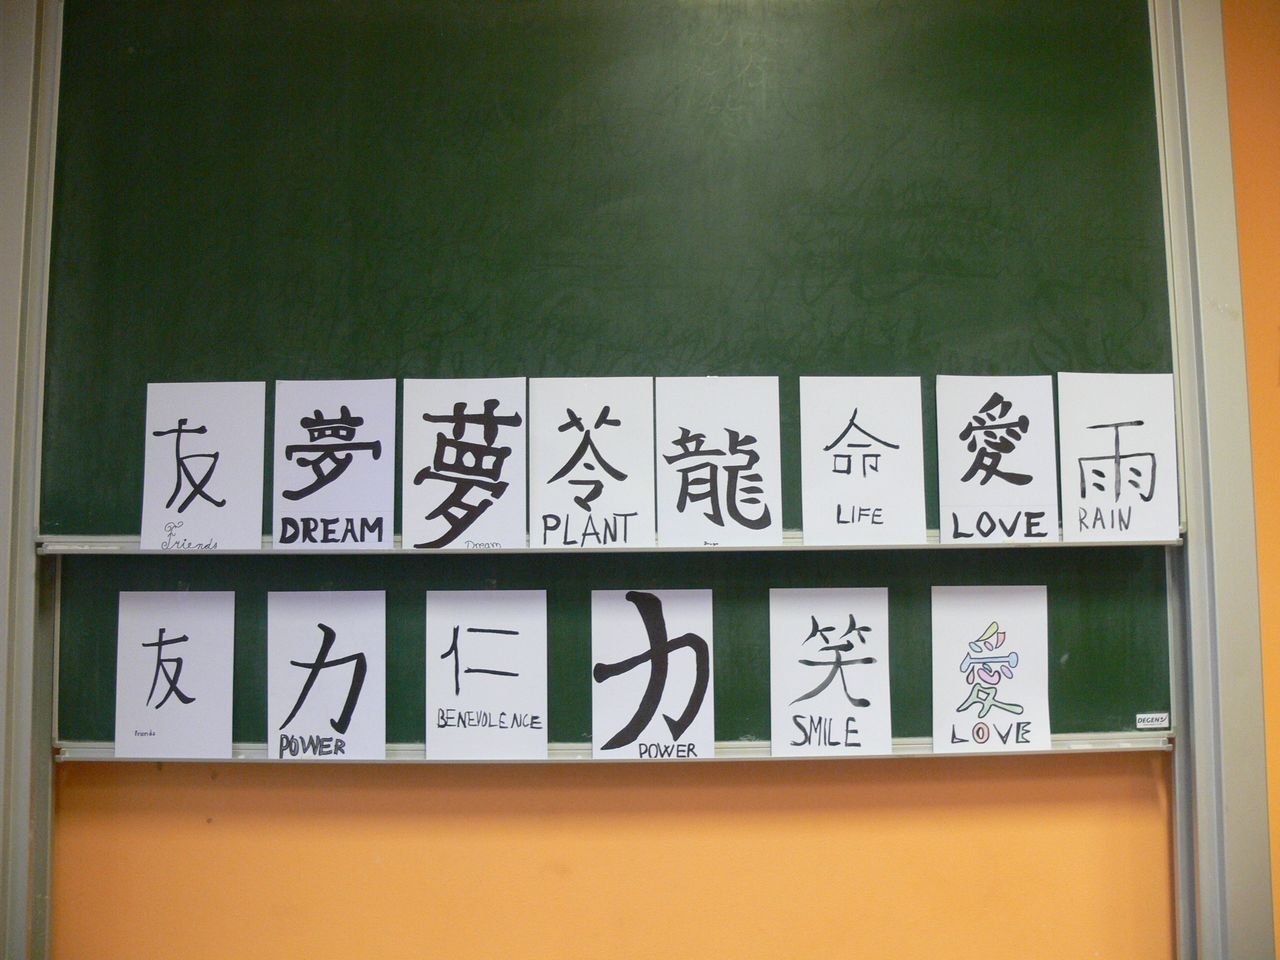 友
Friends
夢
DREAM
夢
Dream
苓
PLANT
龍
命
LIFE
愛
LOVE
雨
RAIN
友
Friends
力
POWER
仁
BENEVOLENCE
力
POWER
笑
SMILE
愛
LOVE